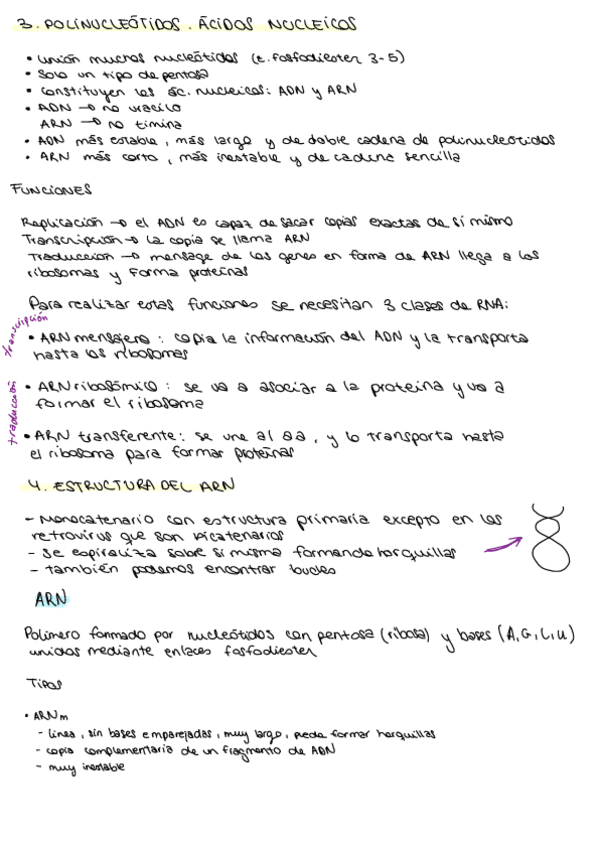 3. POLINUCLEÓTIDOS. ÁCIDOS NUCLEICOS
• unión muchos nucleótidos (e. fosfodiester 3-5)
• Solo un tipo de pentosa
• constituyen los ác. nucleicos: ADN y ARN
• ADN → no uracilo
ARN → no timina
• ADN más estable, más largo y de doble cadena de polinucleotidos
• ARN más corto, más inestable y de cadena sencilla
FUNCIONES
Replicación → el ADN es capaz de sacar copias exactas de sí mismo
Transcripción → la copia se llama ARN
Traducción → mensage de los genes en forma de ARN llega a los
ribosomas y forma proteínas
Para realizar estas funciones se necesitan 3 clases de RNA:
transcripción
• ARN mensajero: copia la información del ADN y la transporta
hasta los ribosomas
traducción
• ARN ribosómico: se va a asociar a la proteína y va a
formar el ribosoma
• ARN transferente: se une al aa, y lo transporta hasta
el ribosoma para formar proteínas
4. ESTRUCTURA DEL ARN
- Monocatenario con estructura primaria excepto en los
retrovirus que son bicatenarios
- Se espiraliza sobre si misma formando horquillas
- también podemos encontrar bucles
ARN
Polímero formado por nucleótidos con pentosa (ribosa) y bases (A, G, C, U)
unidos mediante enlaces fosfodiester
TIPOS
• ARNm
- línea, sin bases emparejadas, muy largo, puede formar horquillas
- copia complementaria de un fragmento de ADN
- muy inestable